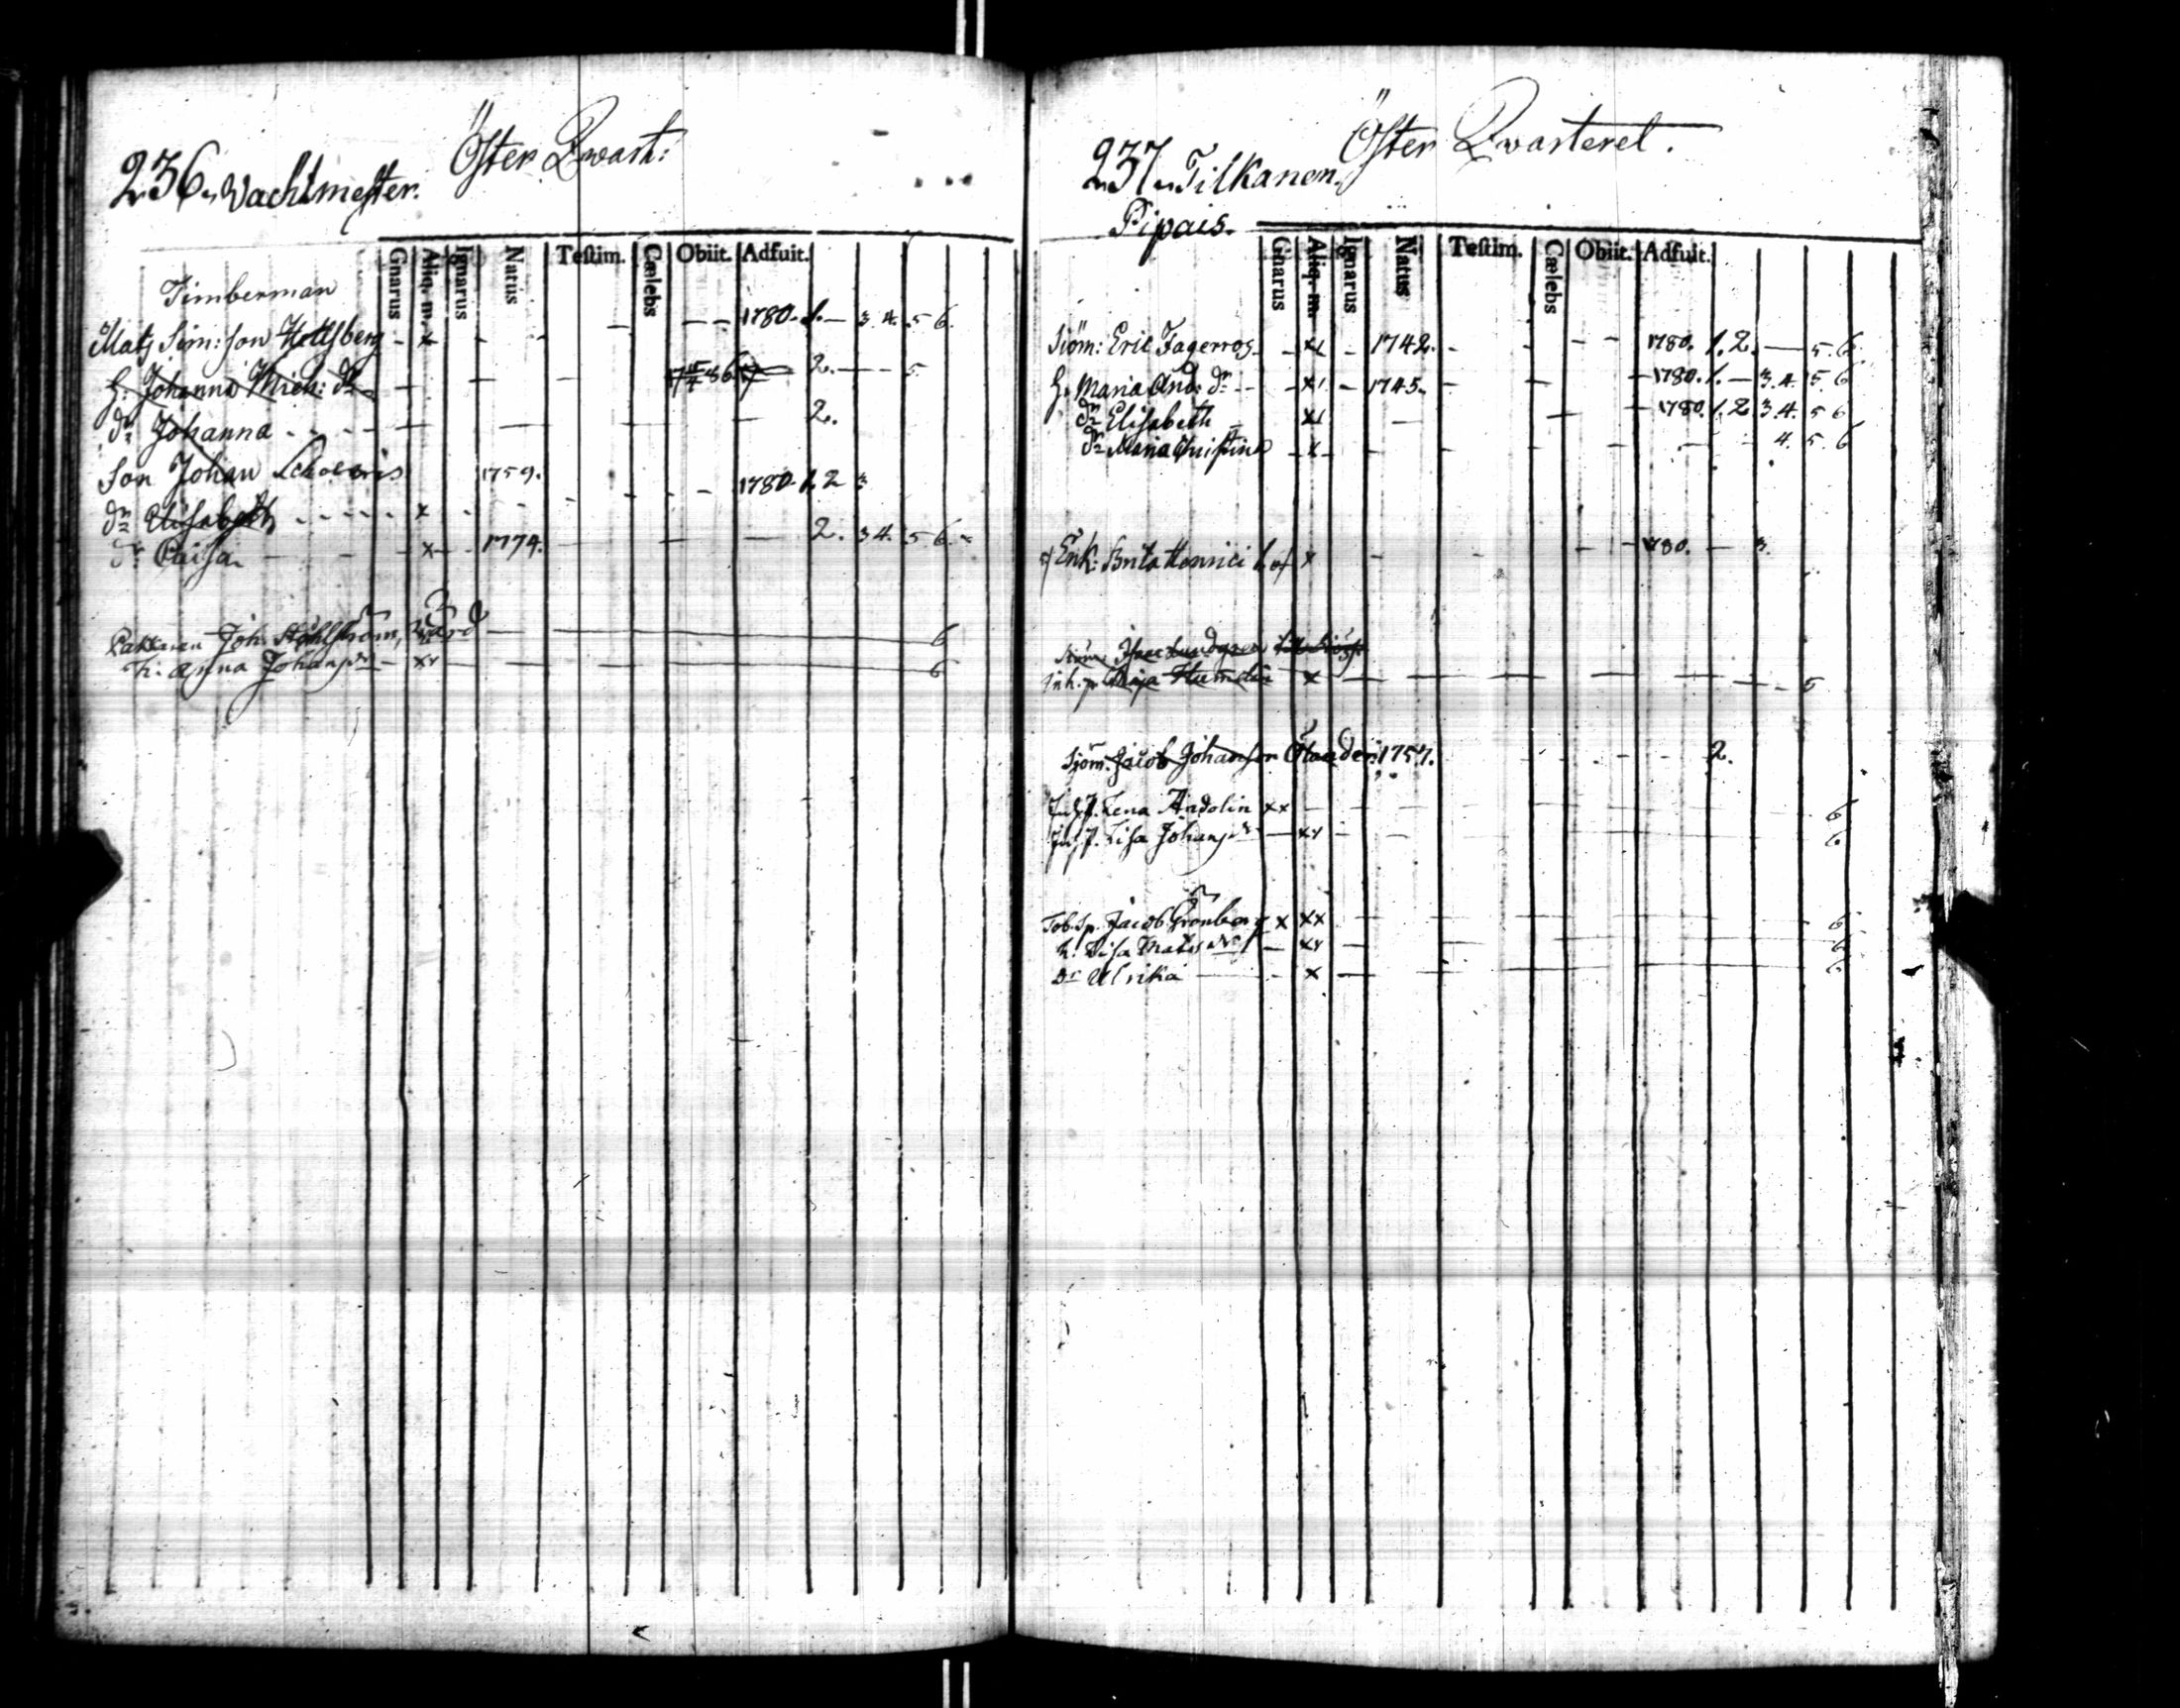 Öster Qwart:
236. Wachtmester.
Gnarus Aliq. m. Ignarus Natus Testim. Cælebs Obiit. Adfuit.
Timberman
Mats Sim: son - x - - - - - 1780. 1. - 3. 4. 5 6.
H. Johanna Mich: dr - - - 86. 2. - - 5.
dr Johanna - - - - - 2.
Son Johan 1759. - - - - 1780. 1. 2 3
dr Elisabeth - - - - x - -
dr Caisa - - x - 1774. - - - 2. 3 4. 5 6.
Joh. Ståhlström, Wärd - 6
h. Anna Johans dr - xx - 6
Öster Qwarteret.
237. Tilkanen.
Pipais.
Gnarus Aliq. m. Ignarus Natus Testim. Cælebs Obiit. Adfuit.
Siöm: Eric Fagerros - x1 - 1742. - - - - 1780. 1. 2. - 5. 6.
H. Maria And: dr - - x1 - 1745. - - - 1780. 1. - 3. 4. 5 6
dr Elisabeth - x1 - - - 1780. 1. 2 3. 4. 5 6
dr Maria Christina - x - - - - - - - 4. 5. 6
Enk: Brita Henrici x - - - - 1780. - 3.
Inh. p. Maja - x - - - - - - 5
Sjöm. Jacob Johanson 1757. - - - - - 2.
Lena Andolin xx - - - - - 6
Lisa Johans dr - xx - - - - 6.
Tob. Sp. Jacob Grönberg x xx - - - - 6
h. Lisa Mats dr - xx - - - - 6
Dr Ulrika - - x - - - - 6